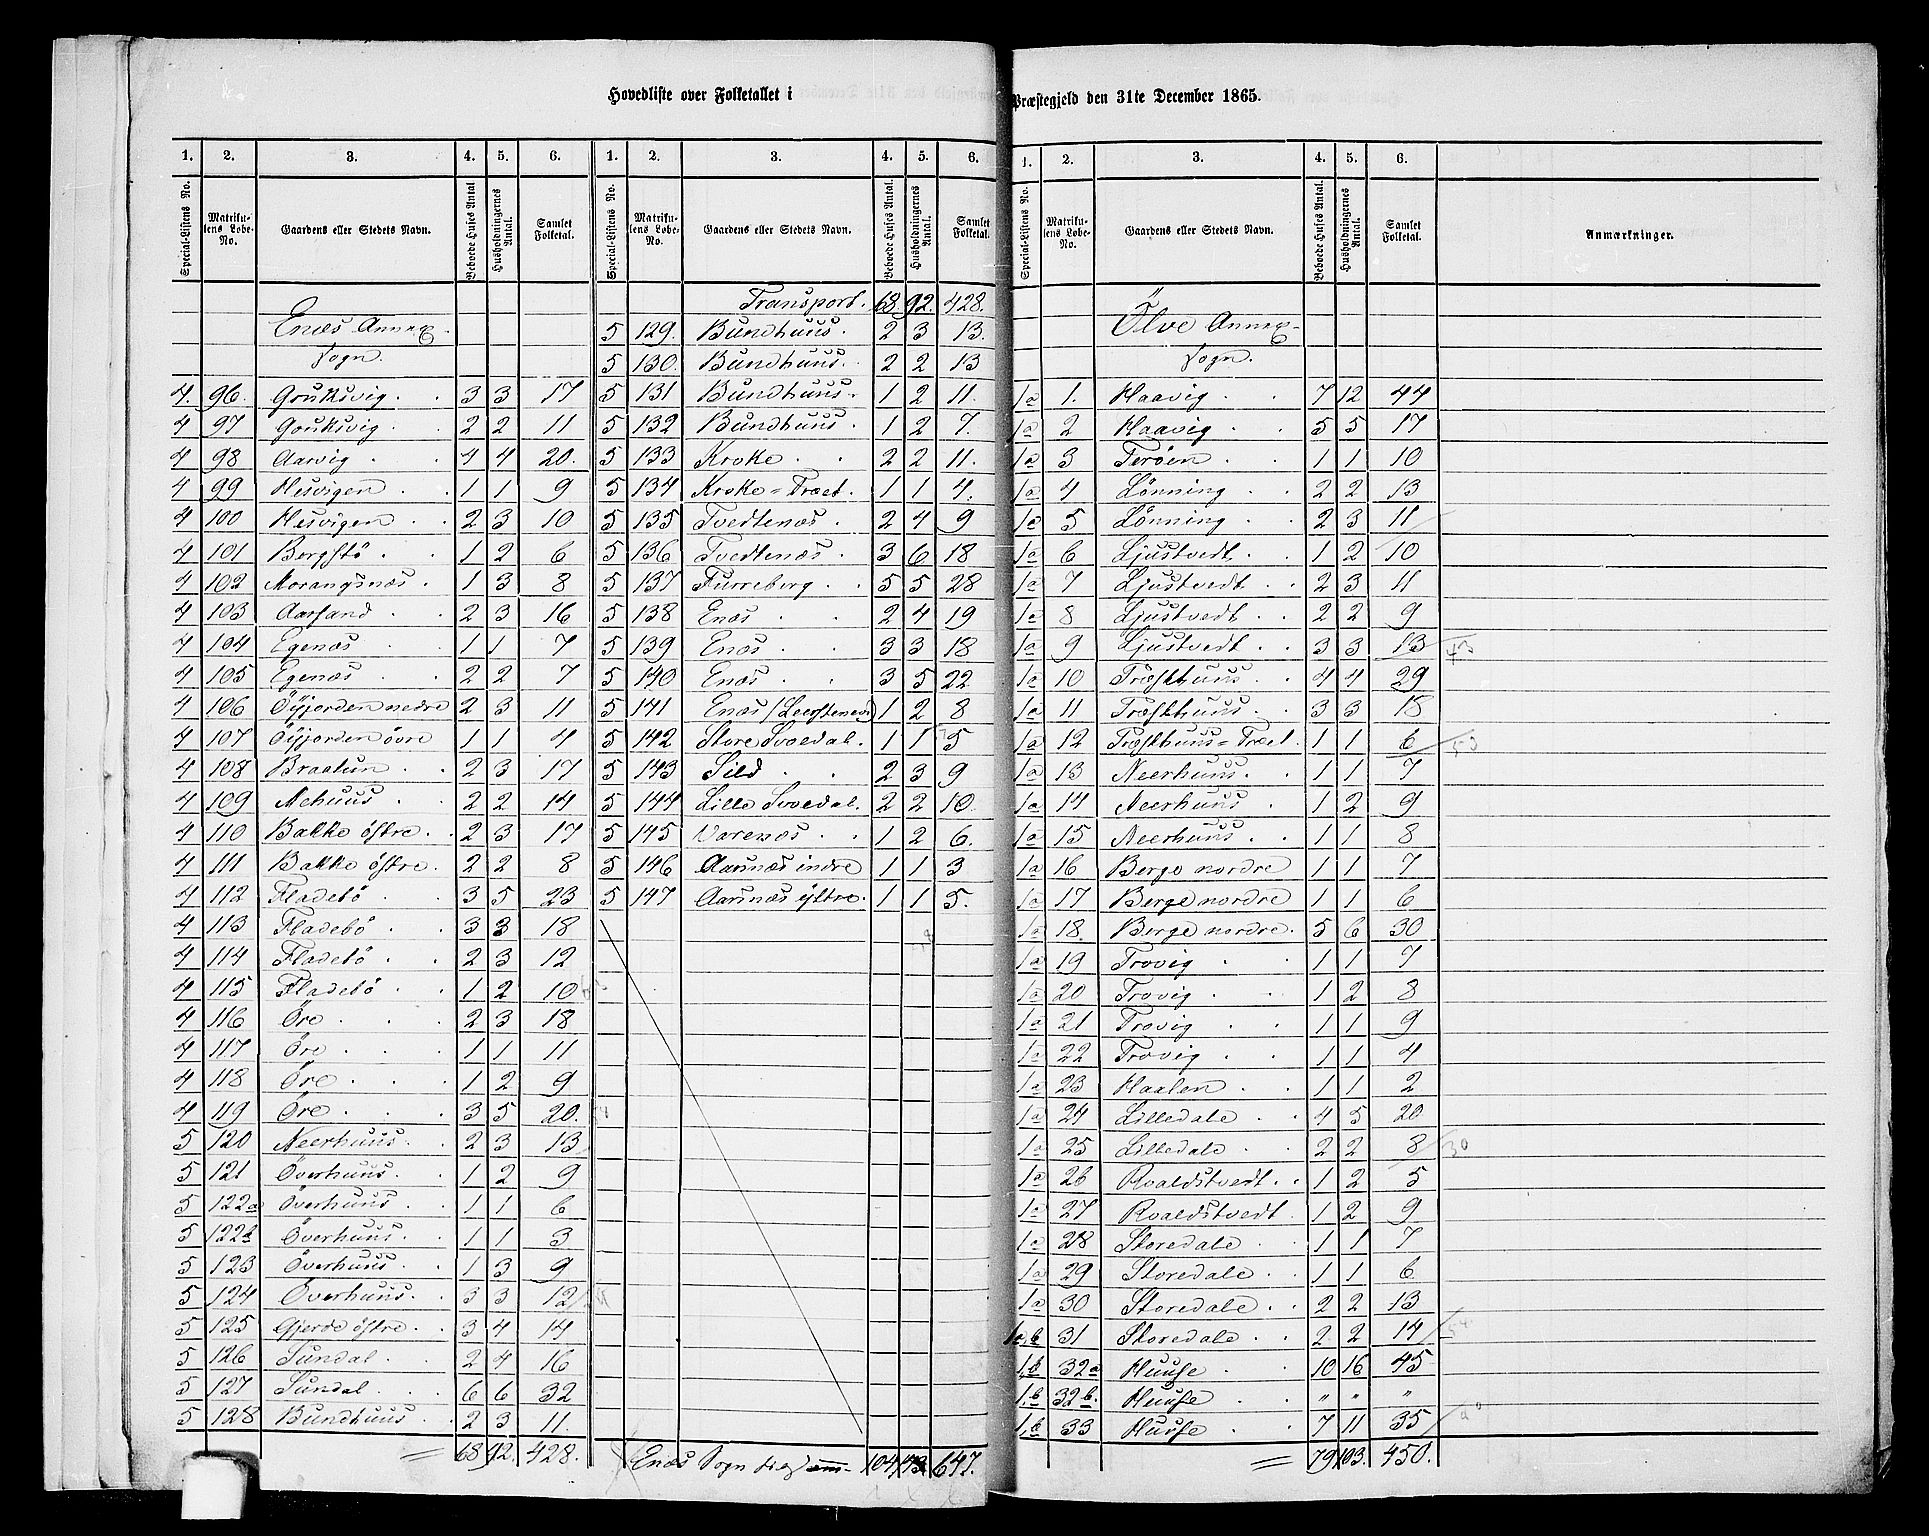 Hovedliste over Folketallet i
Præstegjeld den 31te December 1865.
1. 2. 3. 4. 5. 6. 1. 2. 3. 4. 5. 6.
Special-Listens No. Matrikulens Løbe-No. Gaardens eller Stedets Navn. Beboede Huses Antal Husholdningernes Antal. Samlet Folketal. Special-Listens No. Matrikulens Løbe-No. Gaardens eller Stedets Navn. Beboede Huses Antal. Husholdningernes Antal. Samlet Folketal.
Enæs Annex-
Sogn.
4. 96. Gouksvig 3 3 17
4 97 Gouksvig 2 2 11
4 98 Aarvig 4 4 20.
4 99 Hesvigen 1 1 9
4 100 Hesvigen 2 3 10
4 101 Borgstö 1 2 6
4 102 Morangsnæs 1 3 8
4 103 Aarsand 2 3 16
4 104 Egenæs 1 1 7
4 105 Egenæs 2 2 7
4 106 Öyjorden nedre 2 3 11
4 107 Öyjorden övre 1 1 4
4 108 Braatun 2 3 17
4 109 Nehuus 2 2 14
4 110 Bakke östre 2 3 17
4 111 Bakke östre 2 2 8
4 112 Fladebö 3 5 23
4 113 Fladebö 3 3 18
4 114 Fladebö 2 3 12
4 115 Fladebö 1 2 10
4 116 Öre 2 3 18
4 117 Öre 1 1 11
4 118 Öre 1 2 9
4 119 Öre 3 5 20.
5 120 Neerhuus 2 3 13
5 121 Överhuus 1 2 9
5 122a Överhuus 1 1 6
5 122b Överhuus 1 1 3
5 123 Överhuus 1 3 9
5 124 Överhuus 3 3 12
5 125 Gjerde östre 3 4 14
5 126 Sundal 2 4 16
5 127 Sundal 6 6 32
5 128 Bundhuus 2 3 11
= 68 92. 428.
Transport. 68 92. 428.
5 129. Bundhuus. 2 3 13.
5 130. Bundhuus. 2 2 13
5 131 Bundhuus 1 2 11.
5 132 Bundhuus. 1 2 7.
5 133 Kroke 2 2 11.
5 134 Kroke-Træet. 1 1 4.
5 135 Tvedtenæs 2 4 9
5 136 Tvedtenæs 3 6 18
5 137 Furreberg 5 5 28
5 138 Enæs 2 4 19
5 139 Enæs 3 3 18
5 140 Enæs 3 5 22
5 141 Enæs 1 2 8
5 142 Store Svoedal. 1 1 5
5 143 Sild 2 3 9
5 144 Lille Svoedal. 2 2 10.
5 145 Varenæs 1 2 6.
5 146 Aarsnæs indre 1 1 3
5 147 Aarsnæs ÿttre. 1 1 5.
Enæs Sogn 647.
1. 2. 3. 4. 5. 6.
Special-Listens No. Matrikulens Løbe-No. Gaardens eller Stedets Navn. Beboede Huses Antal. Husholdningernes Antal. Samlet Folketal. Anmærkninger.
Ölve Annex-
Sogn.
1a 1. Haavig 7 12 44
1a 2 Haavig 5 5 17
1a 3 Teröen 1 1 10
1a 4 Lönning 2 2 13
1a 5 Lönning 2 3 11
1a 6 Ljustvedt 1 2 10
1a 7 Ljustvedt 2 3 11
1a 8 Ljustvedt 2 2 9
1a 9 Ljustvedt 3 3 13 43
1a 10 Træskhuus 4 4 29
1a 11 Træskhuus 3 3 18
1a 12 Træskhuus-Træet. 1 1 6 53
1a 13 Neerhuus 1 1 7
1a 14 Neerhuus 1 2 9
1a 15 Neerhuus 1 1 8
1a 16 Berge nordre 1 1 7
1a 17 Berge nordre 1 1 6
1a 18. Berge nordre. 5 6 30
1a 19 Trovig 1 1 7
1a 20 Trovig 1 2 8
1a 21 Trovig 1 1 9
1a 22 Trovig 1 1 4
1a 23 Haalen 1 1 2
1a 24 Lilledale 4 5 20
1a 25 Lilledale 2 2 8 30
1a 26 Roaldstvedt 1 2 5
1a 27 Roaldstvedt 1 2 9
1a 28 Storedale 1 1 7
1a 29 Storedale 1 1 6
1a 30 Storedale 2 2 13
1a,b 31 Storedale 2 2 14
1b 32a Huuse 10 16 45
1b 32b. Huuse " " "
1b 33 Huuse 7 11 35
= 79 103. 450.